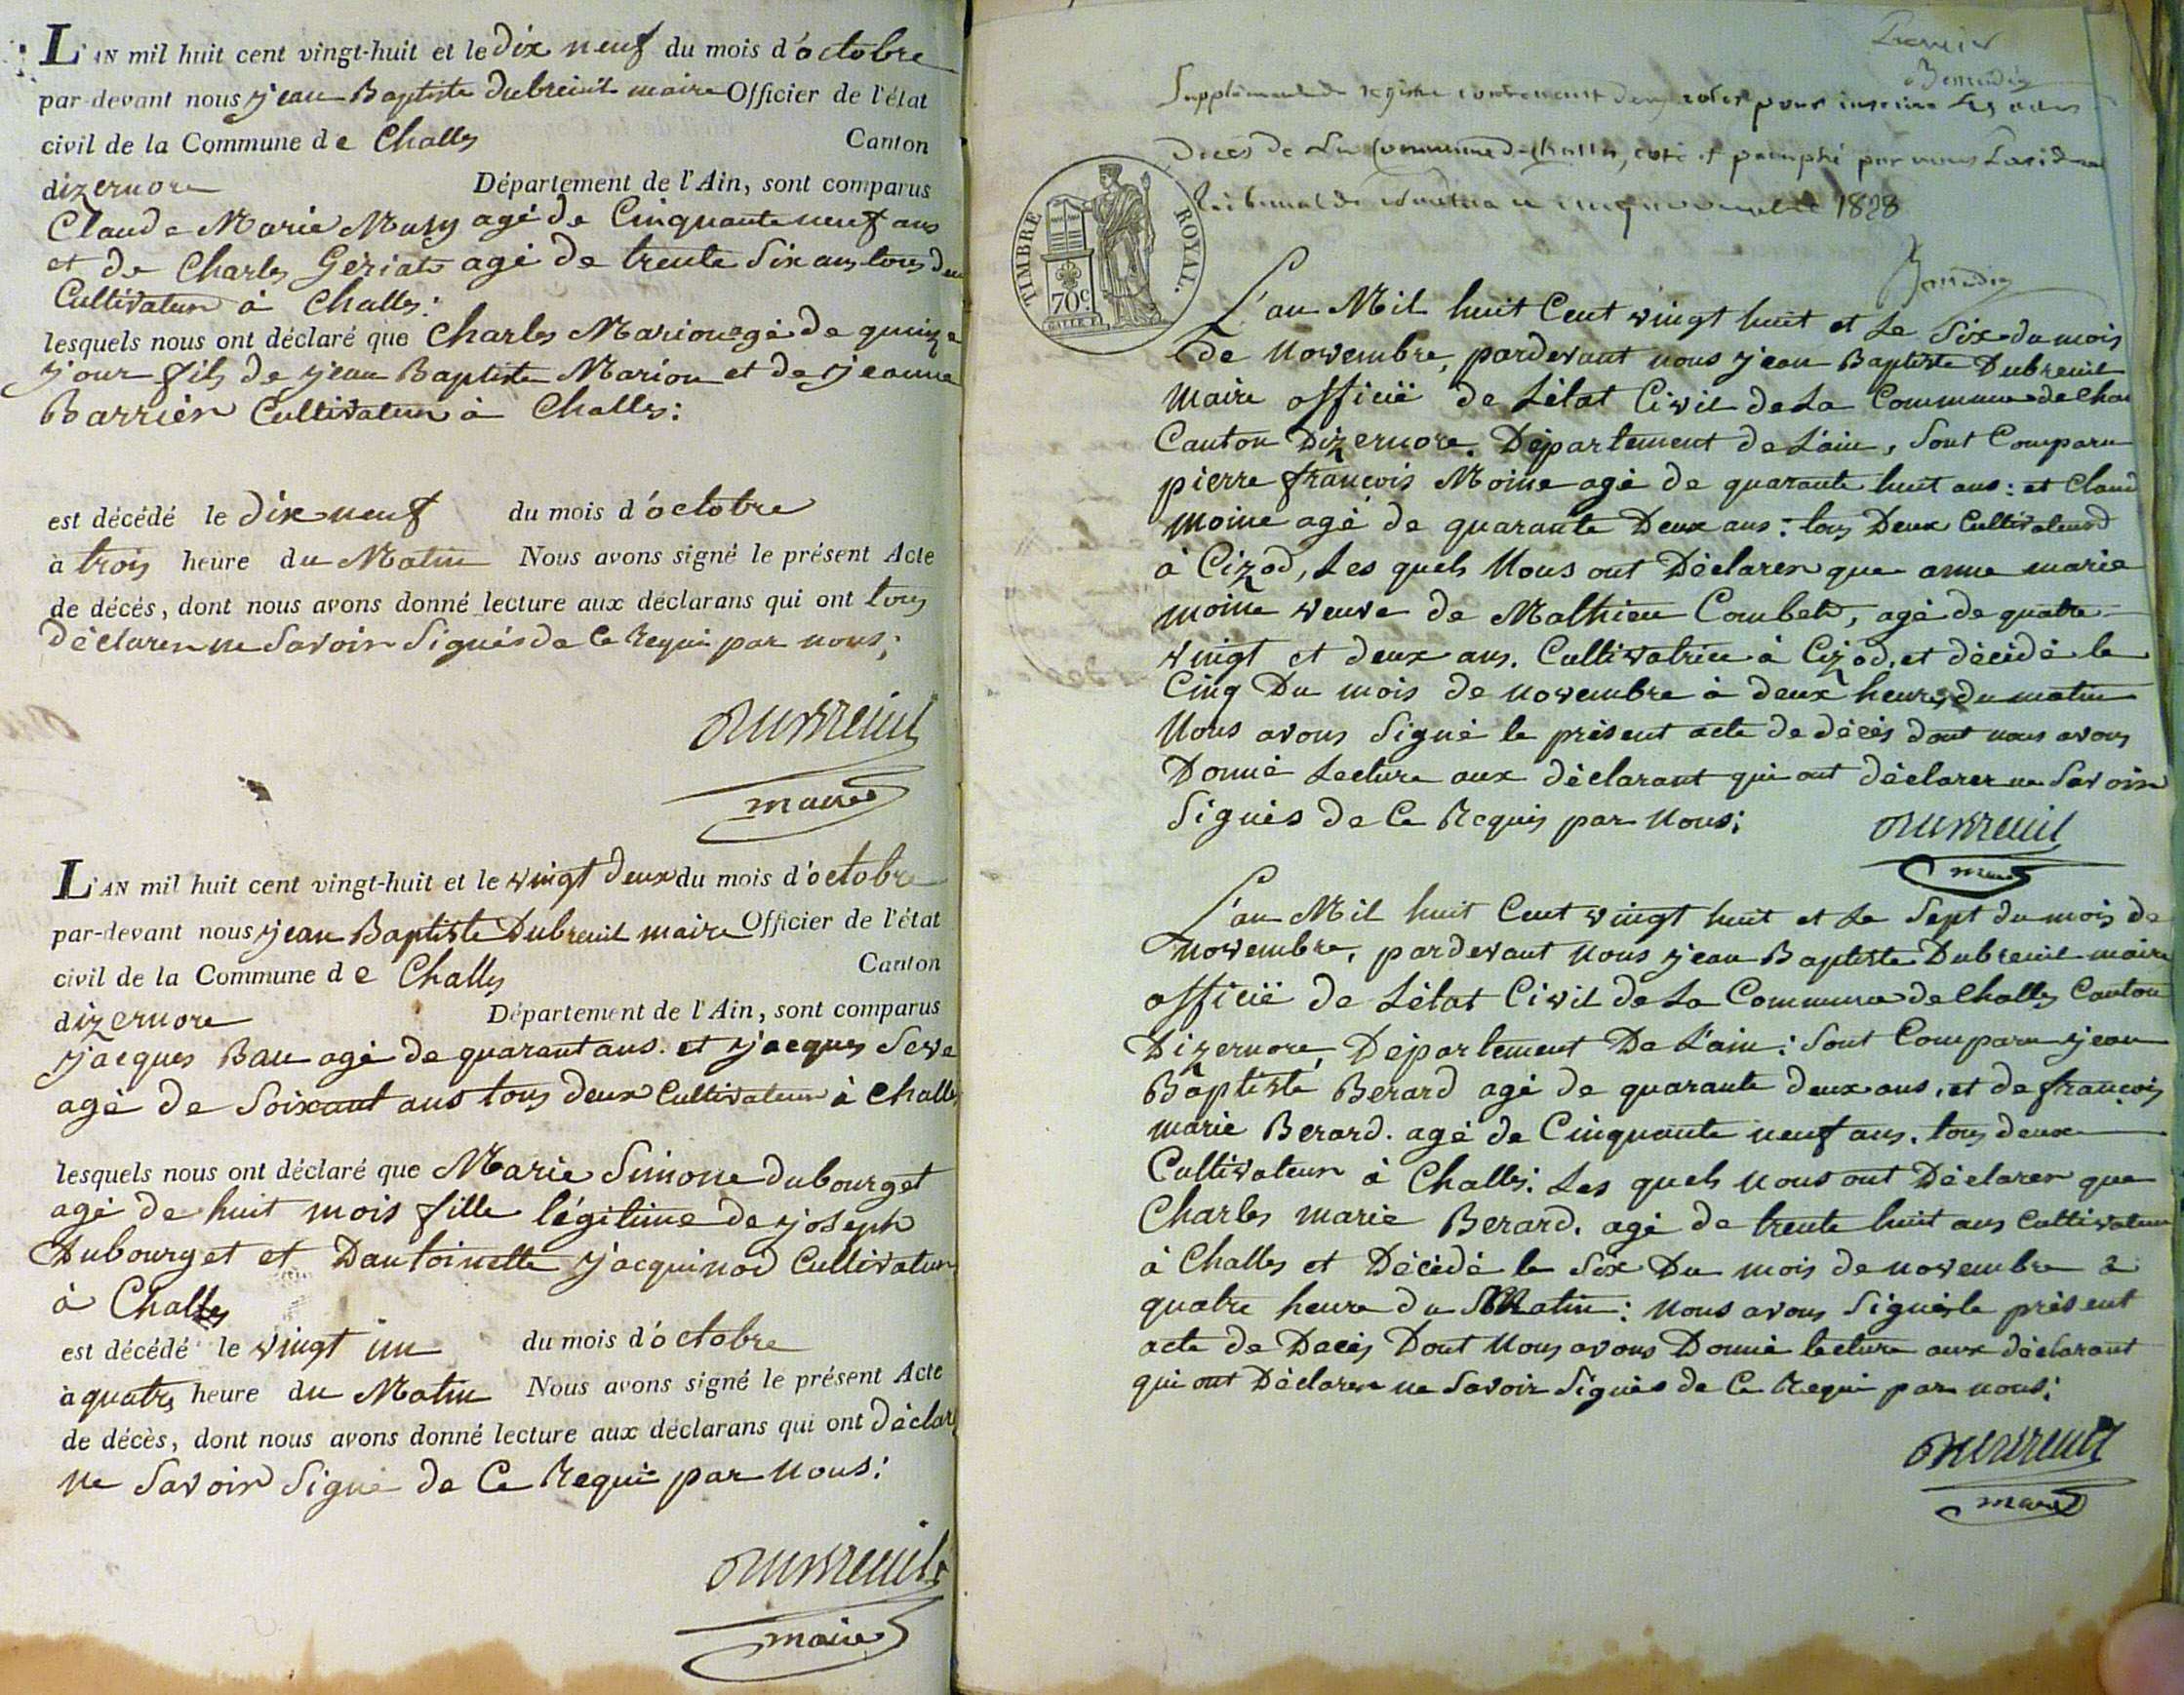 L'AN mil huit cent vingt-huit et le dix neuf du mois d'octobre
par-devant nous jean Baptiste dubreuil maire Officier de l'état
civil de la Commune de Challes Canton
dizernore Département de l'Ain, sont comparus
Claude Marie Musy agé de Cinquante neuf ans
et de Charles Geriats agé de trente Six ans tous deux
Cultivateur à Challes:
lesquels nous ont déclaré que Charles Marion agé de quinze
jour fils de jean Baptiste Marion et de jeanne
Barrier Cultivateur à Challes:
est décédé le dix neuf du mois d'octobre
à trois heure du Matin Nous avons signé le présent Acte
de décès, dont nous avons donné lecture aux déclarans qui ont tous
déclarer ne Savoir Signés de Ce Requi par nous;
Dubreuil
maire
L'AN mil huit cent vingt-huit et le vingt deux du mois d'octobre
par-devant nous jean Baptiste Dubreuil maire Officier de l'état
civil de la Commune de Challes Canton
dizernore Département de l'Ain, sont comparus
jacques Bau agé de quarant ans. et jacques Seve
agé de Soixant ans tous deux Cultivateur à Challes
lesquels nous ont déclaré que Marie Simone dubourget
agé de huit mois fille légitime de joseph
Dubourget et Dantoinette jacquinod Cultivateur
à Challes
est décédé le vingt un du mois d'octobre
à quatre heure du Matin Nous avons signé le présent Acte
de décès, dont nous avons donné lecture aux déclarans qui ont déclar
ne Savoir Signé de Ce Requi par nous:
Dubreuil
maire
Benedin
Supplément du registre contenant deux roles pour inscrire Les actes
Deces de La Commune de Challes, coté et paraphé par nous
tribunal de nantua ce cinq novembre 1828
Benedin
TIMBRE ROYAL.
70c.
L'an Mil huit Cent vingt huit et Le Six du mois
de Novembre, pardevant nous jean Baptiste Dubreuil
Maire officié de L'état Civil de La Commune de Chal
Canton Dizernore. Département de L'ain, Sont Comparu
pierre françois Moine agé de quarante huit ans: et Claud
Moine agé de quarante Deux ans: tous Deux Cultivateurs
à Cizod, Les quels Nous ont Déclarer que anne marie
moine veuve de Mathieu Combets, agé de quatre
vingt et deux ans. Cultivatrice à Cizod, et décédé le
Cinq Du mois de Novembre à deux heures du matin
Nous avons Signé le présent acte de décès dont nous avons
Donné Lecture aux déclarant qui ont déclarer ne Savoir
Signés de Ce Requis par Nous;
Dubreuil
maire
L'an Mil huit Cent vingt huit et Le Sept du mois de
Novembre, pardevant Nous jean Baptiste Dubreuil maire
officié de L'état Civil de La Commune de Challes Canton
Dizernore, Département De L'ain: Sont Comparu jean
Baptiste Berard agé de quarante deux ans, et de françois
marie Berard. agé de Cinquante neuf ans, tous deux
Cultivateur à Challes: Les quels Nous ont Déclarer que
Charles marie Berard, agé de trente huit ans Cultivateur
à Challes et Décédé le Six Du mois de novembre à
quatre heure du Matin: Nous avons Signés le présent
acte de Deces Dont Nous avons Donné lecture aux déclarant
qui ont Déclarer ne Savoir Signés de Ce Requi par nous:
Dubreuil
maire